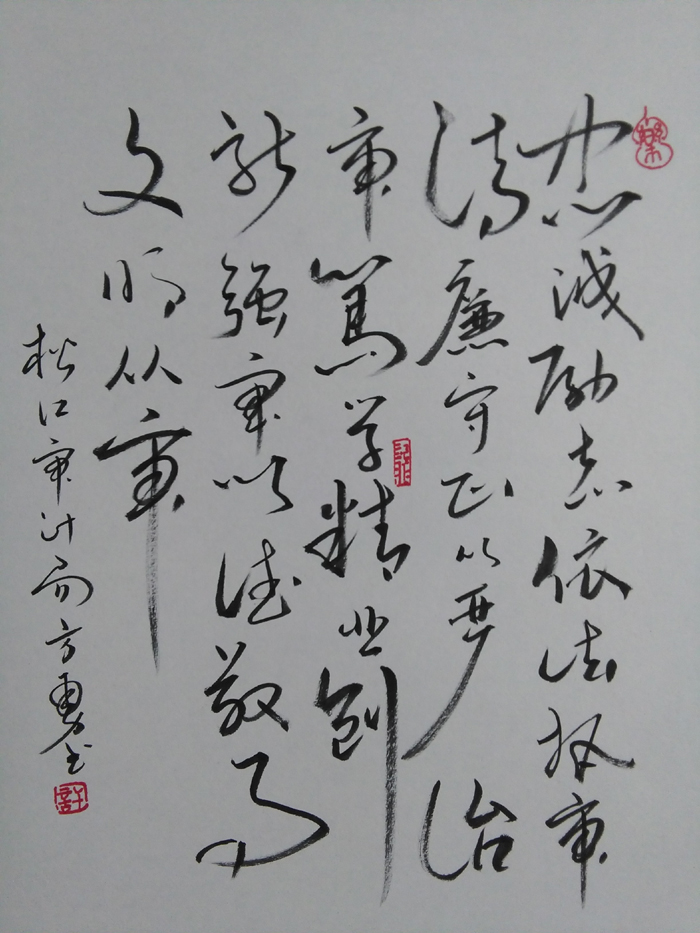 忠诚励志依法审
清廉守正以严治
审笃学精业创
新强审以德敬事
文明从审
松江审计局方勇书
樂